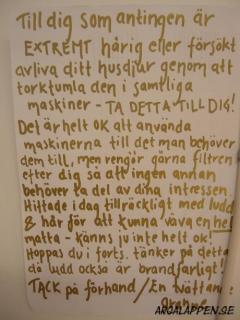 Till dig som antingen är
EXTREMT hårig eller försökt
avliva ditt husdjur genom att
torktumla den i samtliga
maskiner - TA DETTA TILL DIG!
Det är helt OK att använda
maskinerna till det man behöver
dem till, men rengör gärna filtren
efter dig så att ingen annan
behöver ta del av dina intressen.
Hittade idag tillräckligt med ludd
& hår för att kunna väva en hel
matta - känns ju inte helt ok!
Hoppas du i forts. tänker på detta
då ludd också är brandfarligt!
TACK på förhand / En tvättande
granne
ARGALAPPEN.SE